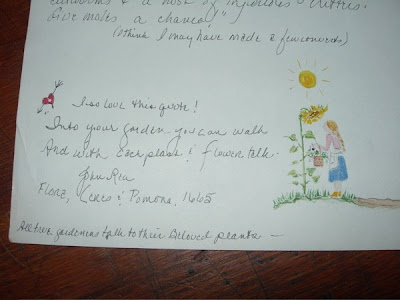 earthworms & a host of impossible "critters.
Give moles a chance!"
(I think I may have made a few converts)
I so love this quote!
Into your garden you can walk
And with each plant & flower talk.
John Rea
Flora, Ceres & Pomona, 1665
All true gardeners talk to their beloved plants —